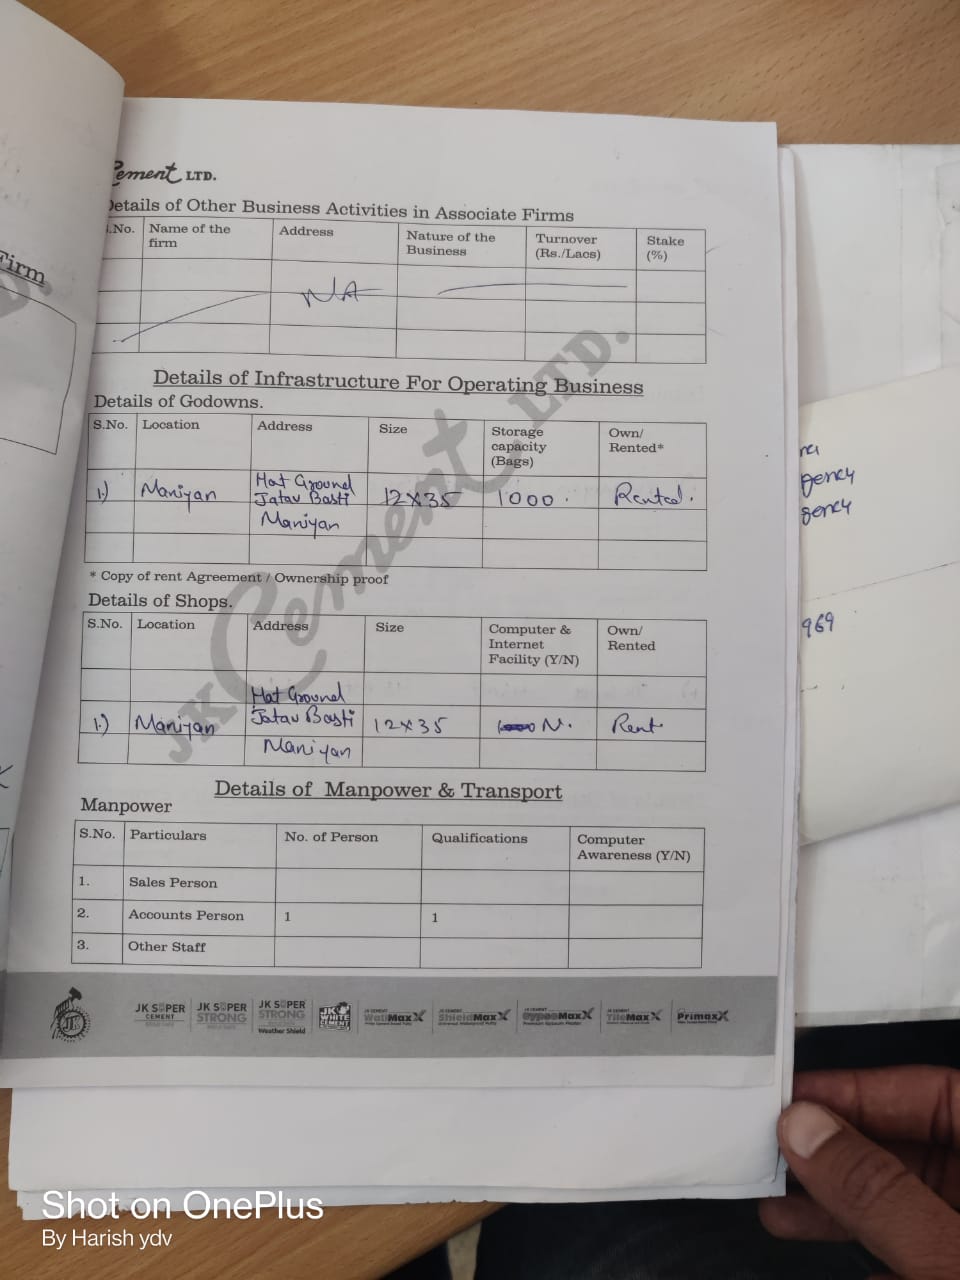 Cement LTD.
Details of Other Business Activities in Associate Firms
S.No. Name of the firm Address Nature of the Business Turnover (Rs./Lacs) Stake (%)
NA
Details of Infrastructure For Operating Business
Details of Godowns.
S.No. Location Address Size Storage capacity (Bags) Own/ Rented*
1.) Maniyan Hat Ground Jatav Basti Maniyan 12x35 1000. Rented.
* Copy of rent Agreement / Ownership proof
Details of Shops.
S.No. Location Address Size Computer & Internet Facility (Y/N) Own/ Rented
1.) Maniyan Hat Ground Jatav Basti Maniyan 12x35 N. Rent
JK Cement LTD.
Details of Manpower & Transport
Manpower
S.No. Particulars No. of Person Qualifications Computer Awareness (Y/N)
1. Sales Person
2. Accounts Person 1 1
3. Other Staff
JK SUPER CEMENT
JK SUPER STRONG
JK SUPER STRONG Weather Shield
JK WHITE CEMENT
JK CEMENT WallMaxX
JK CEMENT ShieldMaxX
JK CEMENT GypsoMaxX
JK CEMENT TileMaxX
PrimaxX
Firm
gency
gency
969
Shot on OnePlus
By Harish ydv